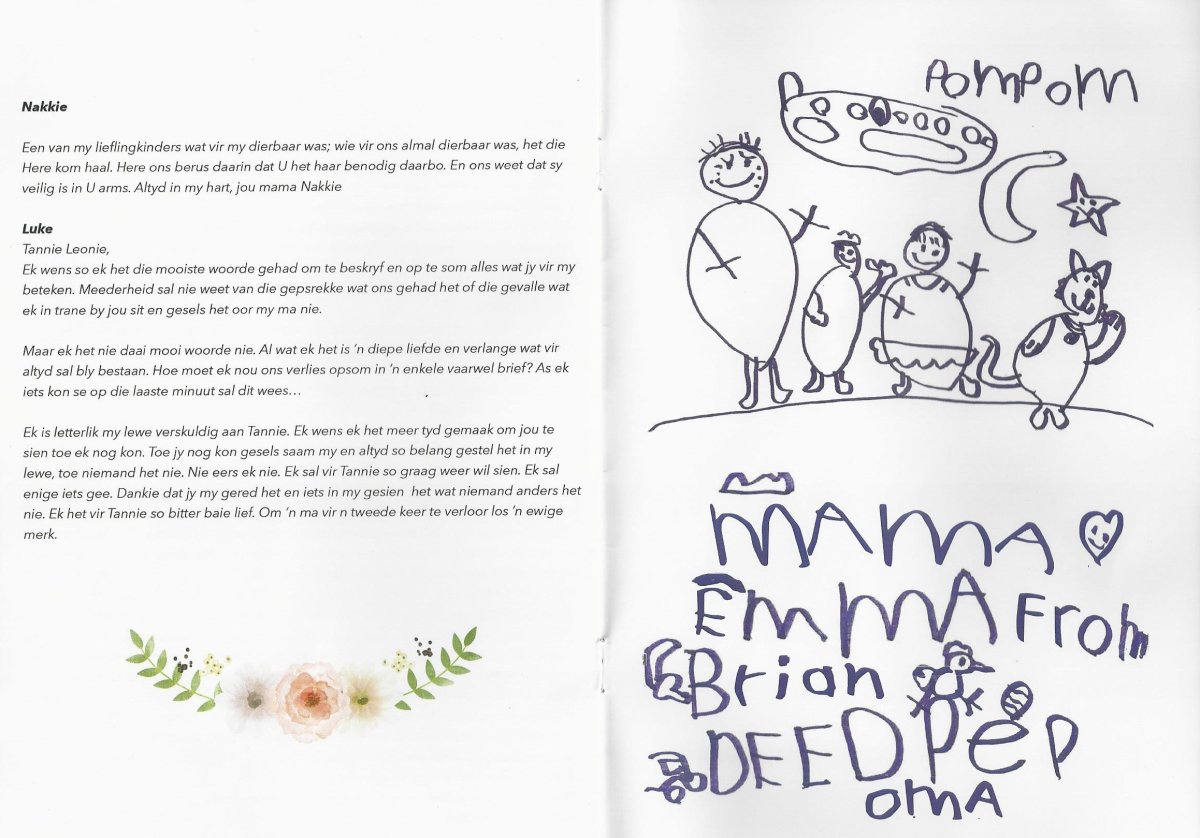 Nakkie
Een van my lieflingkinders wat vir my dierbaar was; wie vir ons almal dierbaar was, het die
Here kom haal. Here ons berus daarin dat U het haar benodig daarbo. En ons weet dat sy
veilig is in U arms. Altyd in my hart, jou mama Nakkie
Luke
Tannie Leonie,
Ek wens so ek het die mooiste woorde gehad om te beskryf en op te som alles wat jy vir my
beteken. Meederheid sal nie weet van die gepsrekke wat ons gehad het of die gevalle wat
ek in trane by jou sit en gesels het oor my ma nie.
Maar ek het nie daai mooi woorde nie. Al wat ek het is ‘n diepe liefde en verlange wat vir
altyd sal bly bestaan. Hoe moet ek nou ons verlies opsom in ‘n enkele vaarwel brief? As ek
iets kon se op die laaste minuut sal dit wees…
Ek is letterlik my lewe verskuldig aan Tannie. Ek wens ek het meer tyd gemaak om jou te
sien toe ek nog kon. Toe jy nog kon gesels saam my en altyd so belang gestel het in my
lewe, toe niemand het nie. Nie eers ek nie. Ek sal vir Tannie so graag weer wil sien. Ek sal
enige iets gee. Dankie dat jy my gered het en iets in my gesien het wat niemand anders het
nie. Ek het vir Tannie so bitter baie lief. Om ‘n ma vir n tweede keer te verloor los ‘n ewige
merk.
Pompom
MAMA
EmmA From
Brian
DEED Pep
omA